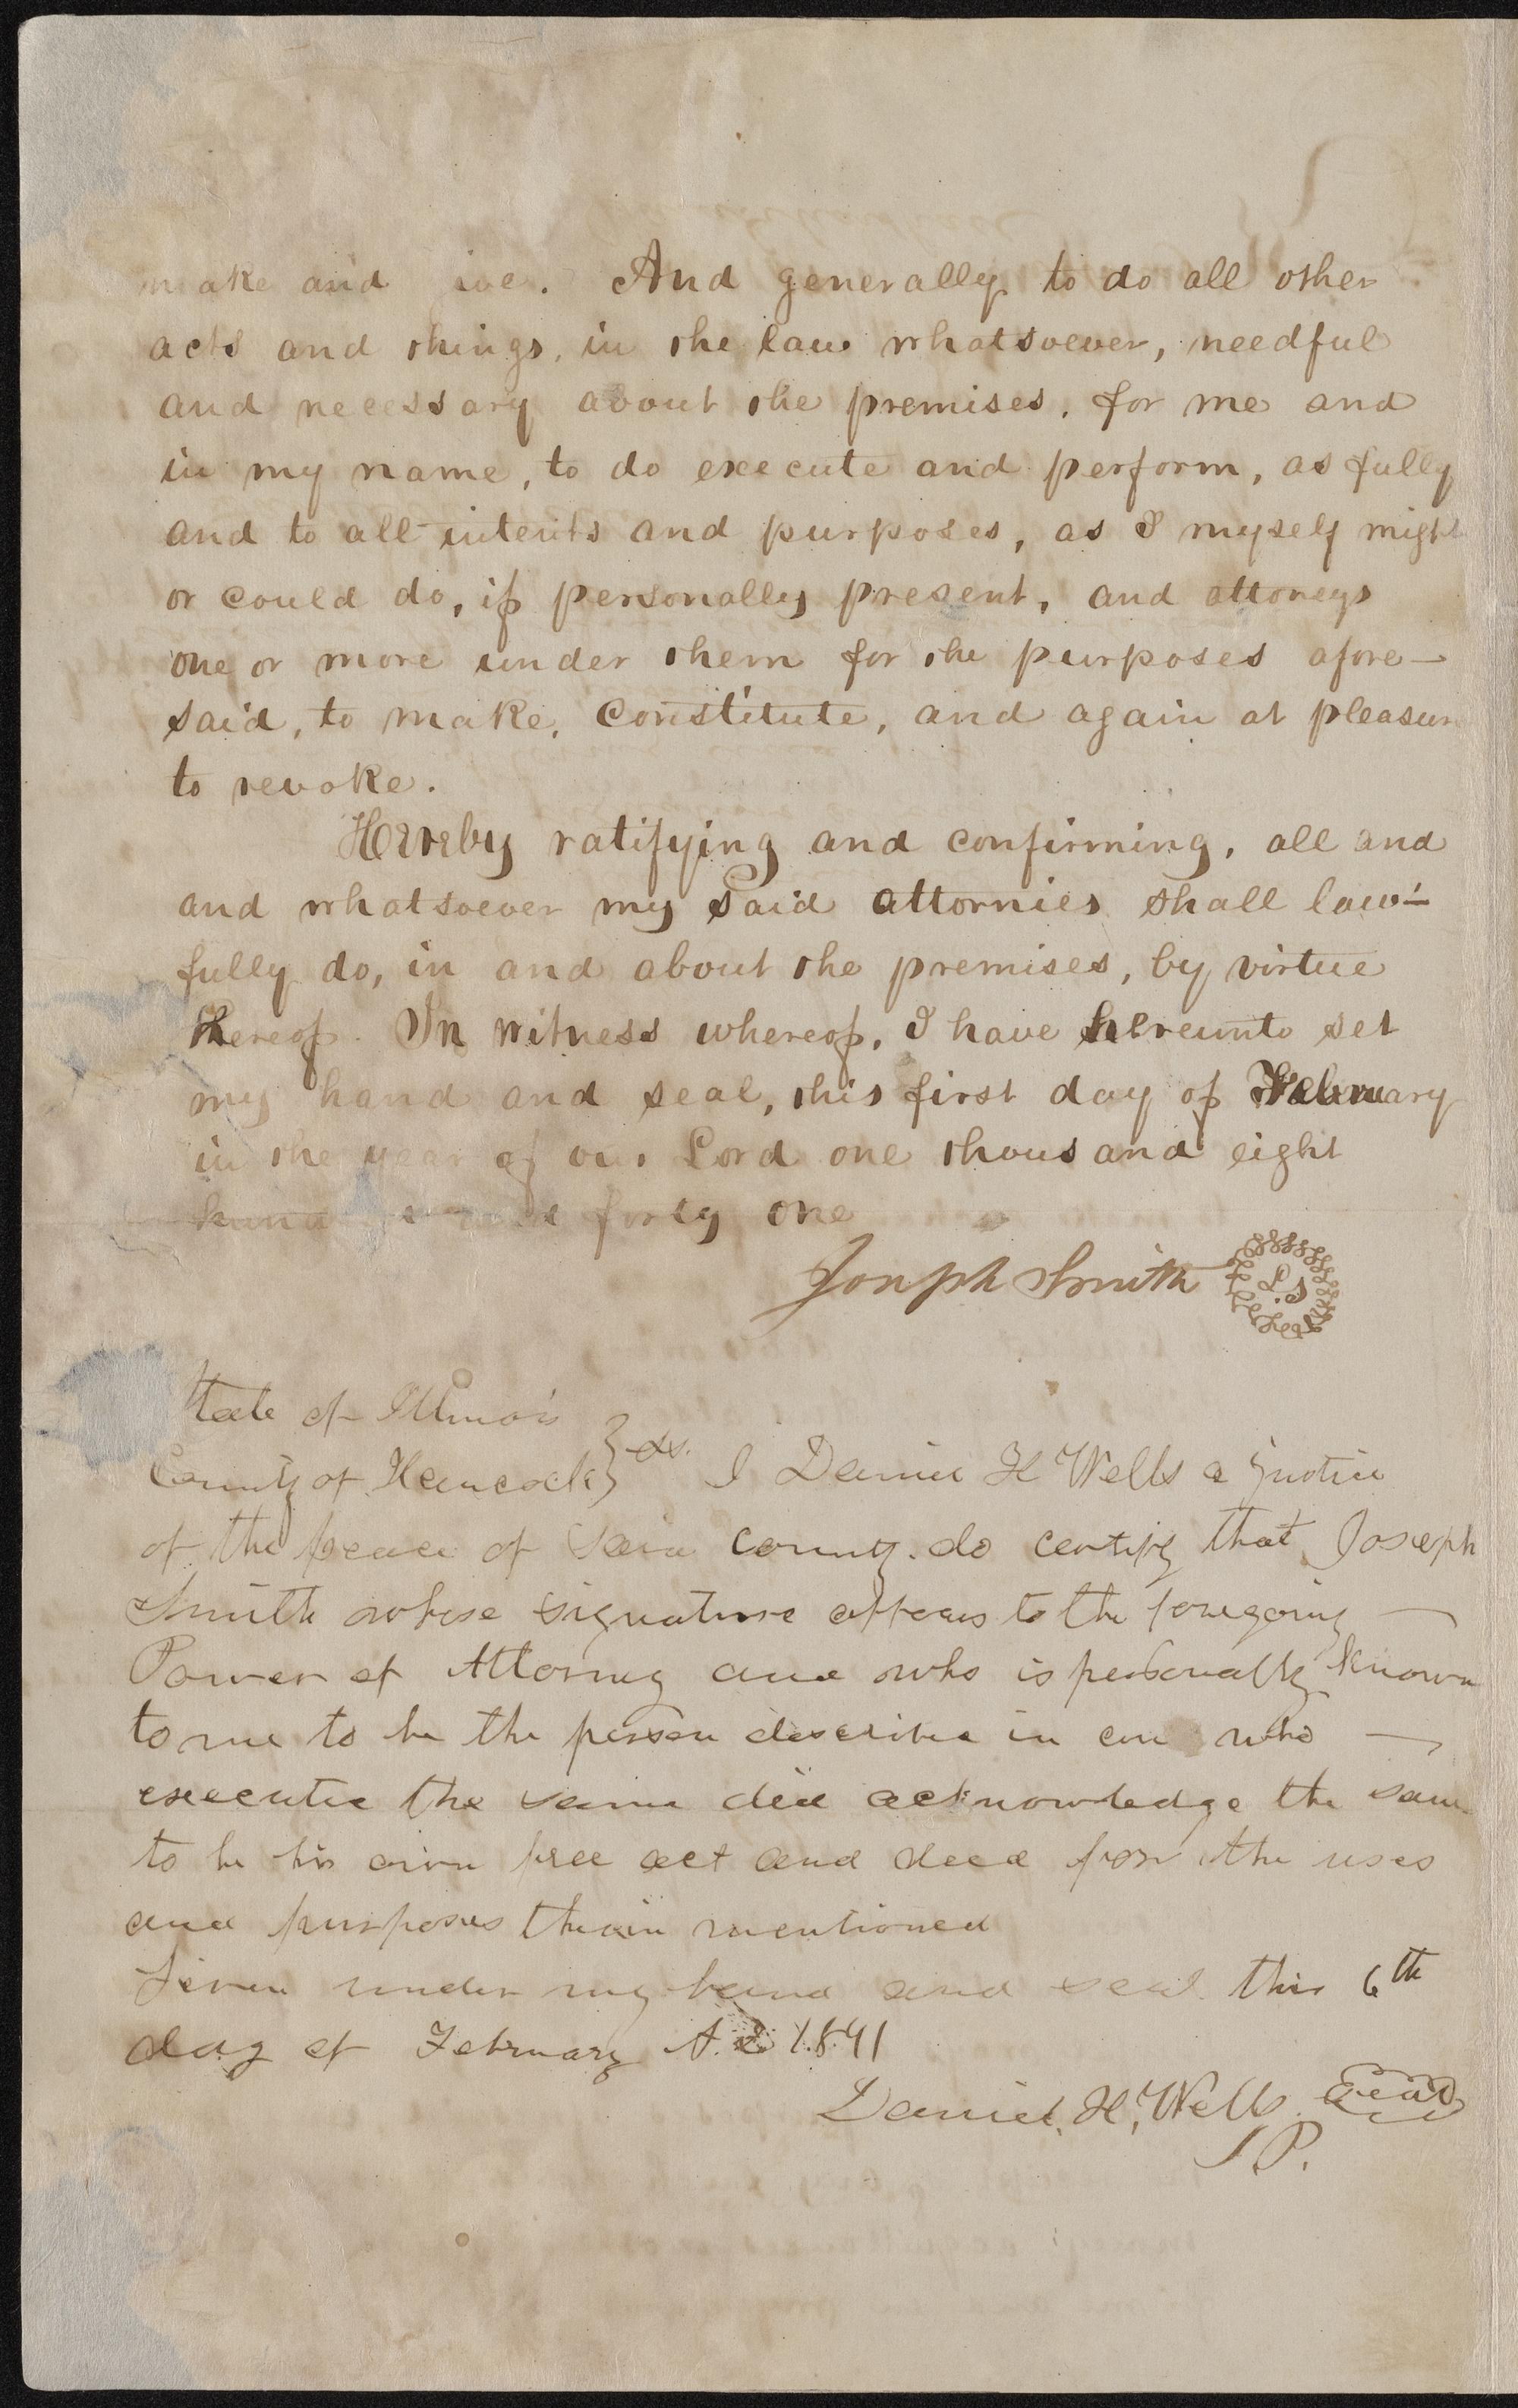 make and ive. And generally to do all other
acts and things, in the law whatsoever, needful
and necessary about the premises, for me and
in my name, to do execute and perform, as fully
and to all intents and purposes, as I myself might
or could do, if personally present, and attoneys
one or more under them for the purposes afore—
said, to make, constitute, and again at pleasur
to revoke.
Hereby ratifying and confirming, all and
and whatsoever my said attornies shall law-
fully do, in and about the premises, by virtue
thereof. In witness whereof, I have hereunto set
my hand and seal, this first day of February
in the year of our Lord one thousand eight
hund forty one
Joseph Smith L.S
State of Illinois
County of Hancock } ss. I Daniel H Wells a justice
of the peace of said county do certify that Joseph
Smith whose signature appears to the foregoing —
Power of Attorney and who is personally known
to me to be the person described in and who —
executed the same did acknowledge the same
to be his own free act and deed for the uses
and purposes therein mentioned
Given under my hand and seal this 6th
day of February A.D 1841
Daniel, H, Wells Seal
J P.